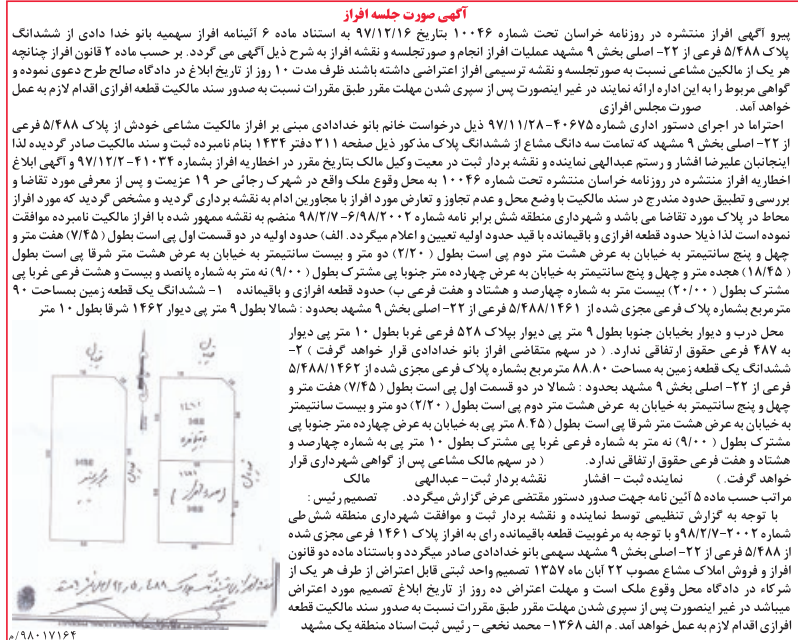 آگهی صورت جلسه افراز
پیرو آگهی افراز منتشره در روزنامه خراسان تحت شماره ۱۰۰۴۶ بتاریخ ۹۷/۱۲/۱۶ به استناد ماده ۶ آئینامه افراز سهمیه بانو خدا دادی از ششدانگ
پلاک ۵/۴۸۸ فرعی از ۲۲- اصلی بخش ۹ مشهد عملیات افراز انجام و صورتجلسه و نقشه افراز به شرح ذیل آگهی می گردد. بر حسب ماده ۲ قانون افراز چنانچه
هر یک از مالکین مشاعی نسبت به صورتجلسه و نقشه ترسیمی افراز اعتراضی داشته باشند ظرف مدت ۱۰ روز از تاریخ ابلاغ در دادگاه صالح طرح دعوی نموده و
گواهی مربوط را به این اداره ارائه نمایند در غیر اینصورت پس از سپری شدن مهلت مقرر طبق مقررات نسبت به صدور سند مالکیت قطعه افرازی اقدام لازم به عمل
خواهد آمد. صورت مجلس افرازی
احتراما در اجرای دستور اداری شماره ۴۰۶۷۵-۹۷/۱۱/۲۸ ذیل درخواست خانم بانو خدادادی مبنی بر افراز مالکیت مشاعی خودش از پلاک ۵/۴۸۸ فرعی
از ۲۲- اصلی بخش ۹ مشهد که تمامت سه دانگ مشاع از ششدانگ پلاک مذکور ذیل صفحه ۳۱۱ دفتر ۱۴۳۴ بنام نامبرده ثبت و سند مالکیت صادر گردیده لذا
اینجانبان علیرضا افشار و رستم عبدالهی نماینده و نقشه بردار ثبت در معیت وکیل مالک بتاریخ مقرر در اخطاریه افراز بشماره ۴۱۰۳۴-۹۷/۱۲/۲ و آگهی ابلاغ
اخطاریه افراز منتشره در روزنامه خراسان منتشره تحت شماره ۱۰۰۴۶ به محل وقوع ملک واقع در شهرک رجائی حر ۱۹ عزیمت و پس از معرفی مورد تقاضا و
بررسی و تطبیق حدود مندرج در سند مالکیت با وضع محل و عدم تجاوز و تعارض مورد افراز با مجاورین ادام به نقشه برداری گردید و مشخص گردید که مورد افراز
محاط در پلاک مورد تقاضا می باشد و شهرداری منطقه شش برابر نامه شماره ۶/۹۸/۲۰۰۲-۹۸/۲/۷ منضم به نقشه ممهور شده با افراز مالکیت نامبرده موافقت
نموده است لذا ذیلا حدود قطعه افرازی و باقیمانده با قید حدود اولیه تعیین و اعلام میگردد. الف) حدود اولیه در دو قسمت اول پی است بطول (۷/۴۵) هفت متر و
چهل و پنج سانتیمتر به خیابان به عرض هشت متر دوم پی است بطول ( ۲/۲۰) دو متر و بیست سانتیمتر به خیابان به عرض هشت متر شرقا پی است بطول
(۱۸/۴۵ ) هجده متر و چهل و پنج سانتیمتر به خیابان به عرض چهارده متر جنوبا پی مشترک بطول ( ۹/۰۰) نه متر به شماره پانصد و بیست و هشت فرعی غربا پی
مشترک بطول ( ۲۰/۰۰) بیست متر به شماره چهارصد و هشتاد و هفت فرعی ب) حدود قطعه افرازی و باقیمانده ۱- ششدانگ یک قطعه زمین بمساحت ۹۰
مترمربع بشماره پلاک فرعی مجزی شده از ۵/۴۸۸/۱۴۶۱ فرعی از ۲۲- اصلی بخش ۹ مشهد بحدود : شمالا بطول ۹ متر پی دیوار ۱۴۶۲ شرقا بطول ۱۰ متر
محل درب و دیوار بخیابان جنوبا بطول ۹ متر پی دیوار بپلاک ۵۲۸ فرعی غربا بطول ۱۰ متر پی دیوار
به ۴۸۷ فرعی حقوق ارتفاقی ندارد. ( در سهم متقاضی افراز بانو خدادادی قرار خواهد گرفت ) ۲-
ششدانگ یک قطعه زمین به مساحت ۸۸.۸۰ مترمربع بشماره پلاک فرعی مجزی شده از ۵/۴۸۸/۱۴۶۲
فرعی از ۲۲- اصلی بخش ۹ مشهد بحدود: شمالا در دو قسمت اول پی است بطول (۷/۴۵) هفت متر و
چهل و پنج سانتیمتر به خیابان به عرض هشت متر دوم پی است بطول ( ۲/۲۰) دو متر و بیست سانتیمتر
به خیابان به عرض هشت متر شرقا پی است بطول ( ۸.۴۵ متر پی به خیابان به عرض چهارده متر جنوبا پی
مشترک بطول ( ۹/۰۰) نه متر به شماره فرعی غربا پی مشترک بطول ۱۰ متر پی به شماره چهارصد و
هشتاد و هفت فرعی حقوق ارتفاقی ندارد. ( در سهم مالک مشاعی پس از گواهی شهرداری قرار
خواهد گرفت. ) نماینده ثبت - افشار نقشه بردار ثبت - عبدالهی مالک
مراتب حسب ماده ۵ آئین نامه جهت صدور دستور مقتضی عرض گزارش میگردد. تصمیم رئیس :
با توجه به گزارش تنظیمی توسط نماینده و نقشه بردار ثبت و موافقت شهرداری منطقه شش طی
شماره ۲۰۰۲-۹۸/۲/۷ و با توجه به مرغوبیت قطعه باقیمانده رای به افراز پلاک ۱۴۶۱ فرعی مجزی شده
از ۵/۴۸۸ فرعی از ۲۲- اصلی بخش ۹ مشهد سهمی بانو خدادادی صادر میگردد و باستناد ماده دو قانون
افراز و فروش املاک مشاع مصوب ۲۲ آبان ماه ۱۳۵۷ تصمیم واحد ثبتی قابل اعتراض از طرف هر یک از
شرکاء در دادگاه محل وقوع ملک است و مهلت اعتراض ده روز از تاریخ ابلاغ تصمیم مورد اعتراض
میباشد در غیر اینصورت پس از سپری شدن مهلت مقرر طبق مقررات نسبت به صدور سند مالکیت قطعه
افرازی اقدام لازم به عمل خواهد آمد. م الف ۱۳۶۸- محمد نخعی - رئیس ثبت اسناد منطقه یک مشهد
۹۸۰۱۷۱۶۴/م